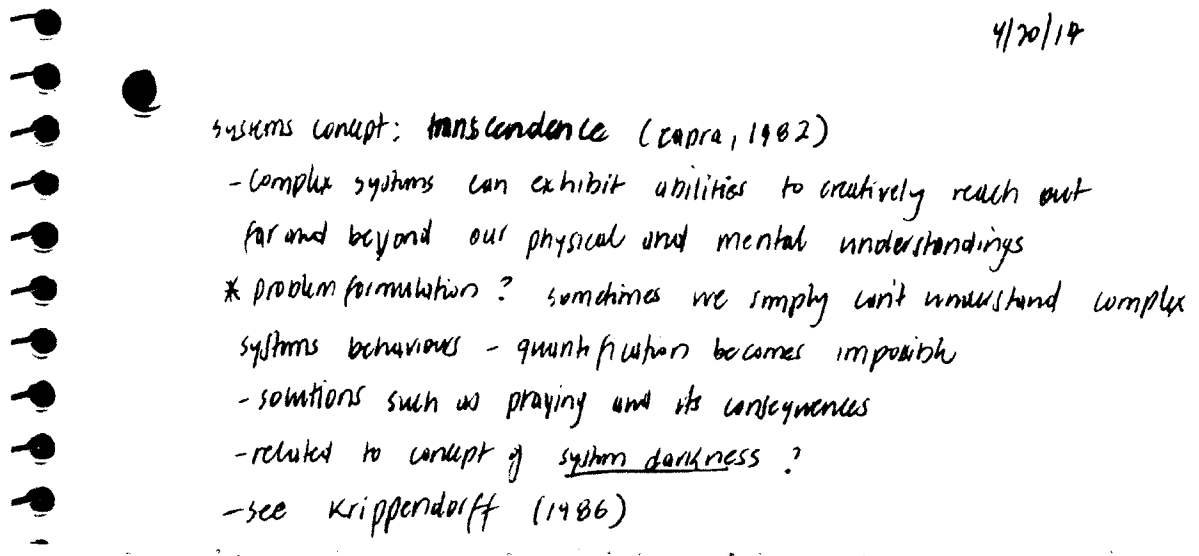 4/20/17
systems concept: transcendence (Capra, 1982)
- complex systems can exhibit abilities to creatively reach out
far and beyond our physical and mental understandings
* problem formulation? sometimes we simply can't understand complex
systems behaviours - quantification becomes impossible
- solutions such as praying and its consequences
- related to concept of system darkness?
- see Krippendorff (1986)